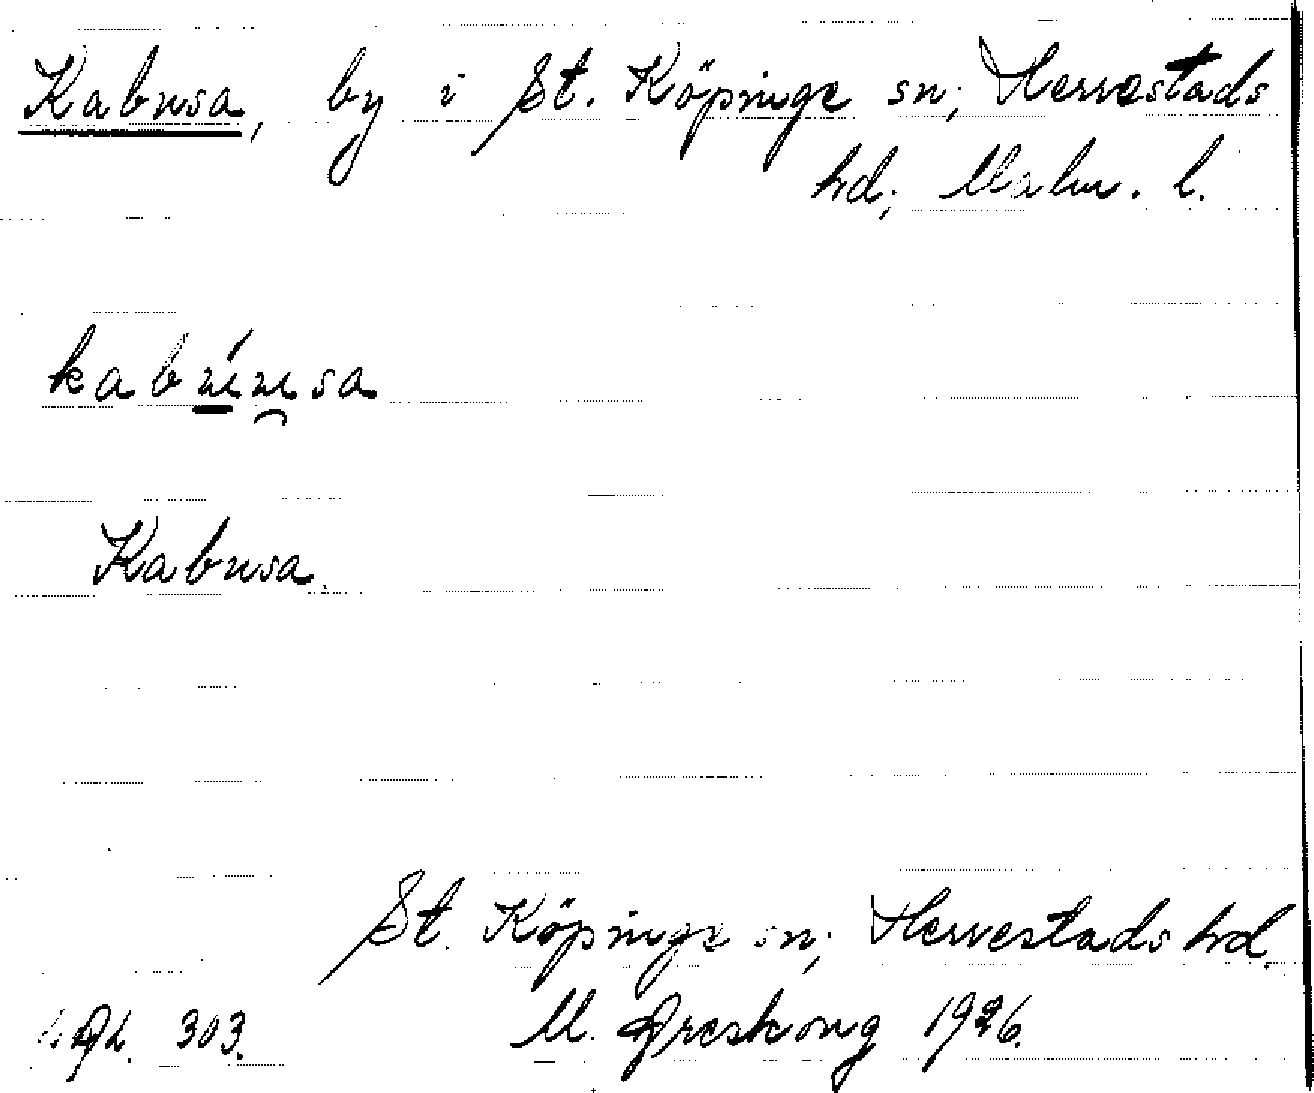 Kabusa, by i St. Köpinge sn; Herrestads
hd; Malm. l.
kabúusa
Kabusa.
St. Köpinge sn; Herrestads hd.
303. M. Areskoug 1926.